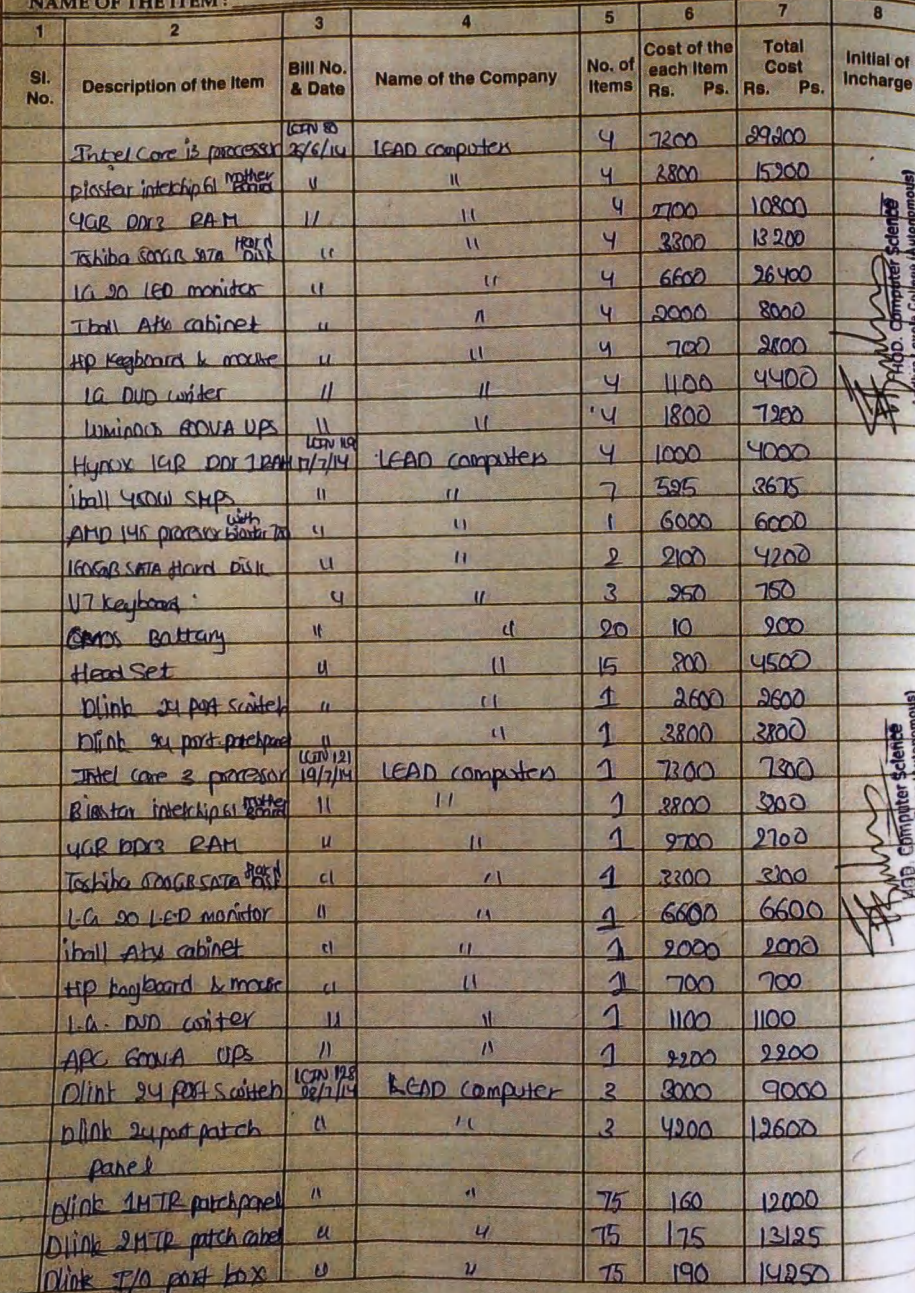 NAME OF THE ITEM :
1 2 3 4 5 6 7 8
Sl. No. Description of the Item Bill No. & Date Name of the Company No. of Items Cost of the each Item Rs. Ps. Total Cost Rs. Ps. Initial of Incharge
Intel Core i3 processor 26/6/14 LEAD computers 4 7300 29200
Biostar intelchip61 Mother Board " " 4 3800 15200
4GB DDr3 RAM " " 4 2700 10800
Toshiba 500GB SATA Hard Disk " " 4 3300 13200
LG 20 LED monitor " " 4 6600 26400
Iball Atx cabinet " " 4 2000 8000
HP Keyboard & mouse " " 4 700 2800
LG DVD writer " " 4 1100 4400
Luminous 600VA UPS " " 4 1800 7200
Hynox 1GB DDr 1 RAM LCIN 119 17/7/14 LEAD computers 4 1000 4000
iball 450W SMPS " " 7 525 3675
AMD 145 processor with biostar " " 1 6000 6000
160GB SATA Hard Disk " " 2 2100 4200
V7 Keyboard " " 3 250 750
CMOS Battary " " 20 10 200
Head Set " " 15 300 4500
Dlink 24 port scwitch " " 1 2600 2600
Dlink 24 port patchpanel " " 1 3800 3800
Intel core 3 processor LCIN 121 19/7/14 LEAD computers 1 7300 7300
Biostar intelchip61 Mother Board " " 1 3800 3800
4GB DDr3 RAM " " 1 2700 2700
Toshiba 500GB SATA Hard Disk " " 1 3300 3300
L.G 20 L.E.D monitor " " 1 6600 6600
iball Atx cabinet " " 1 2000 2000
HP keyboard & mouse " " 1 700 700
L.G. DVD writer " " 1 1100 1100
APC 600VA UPS " " 1 2200 2200
Dlink 24 port scwitch LCIN 128 LEAD computer 3 3000 9000
Dlink 24 port patch " " 3 4200 12600
panel
Dlink 1MTR patchpanel " " 75 160 12000
Dlink 2MTR patch cabel " " 75 175 13125
Dlink I/O port box " " 75 190 14250
HOD Computer Science
College (Autonomous)
HOD Computer Science
(Autonomous)